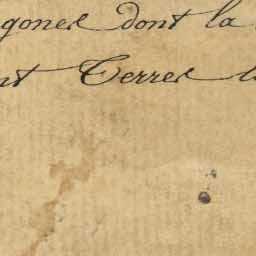 gones dont la
nt Terres